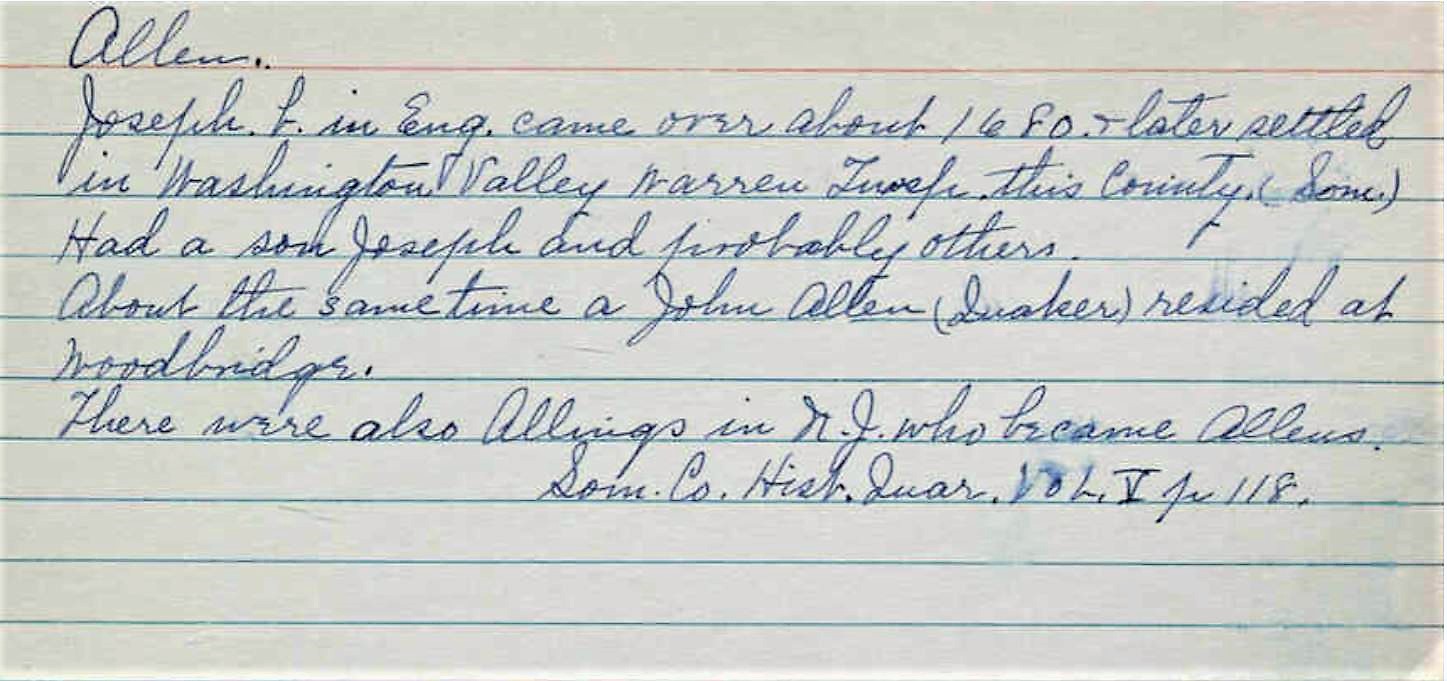 Allen.
Joseph. b. in Eng. came over about 1680. & later settled
in Washington Valley Warren Twsp. this County. (Som.)
Had a son Joseph and probably others.
About the same time a John Allen (Quaker) resided at
Woodbridge.
There were also Allings in N.J. who became Allens.
Som. Co. Hist. Quar. Vol. V p 118.